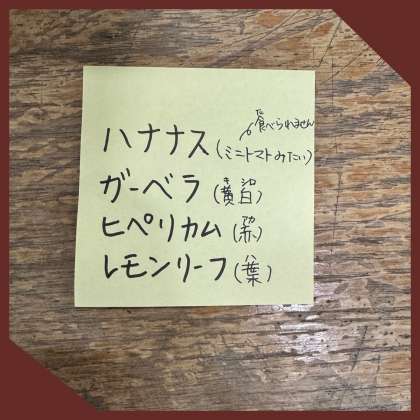 食べられません
た
ハナナス(ミニトマトみたい)
ガーベラ(黄白)
き シロ
ヒペリカム(赤)
アカ
レモンリーフ(葉)
ハ